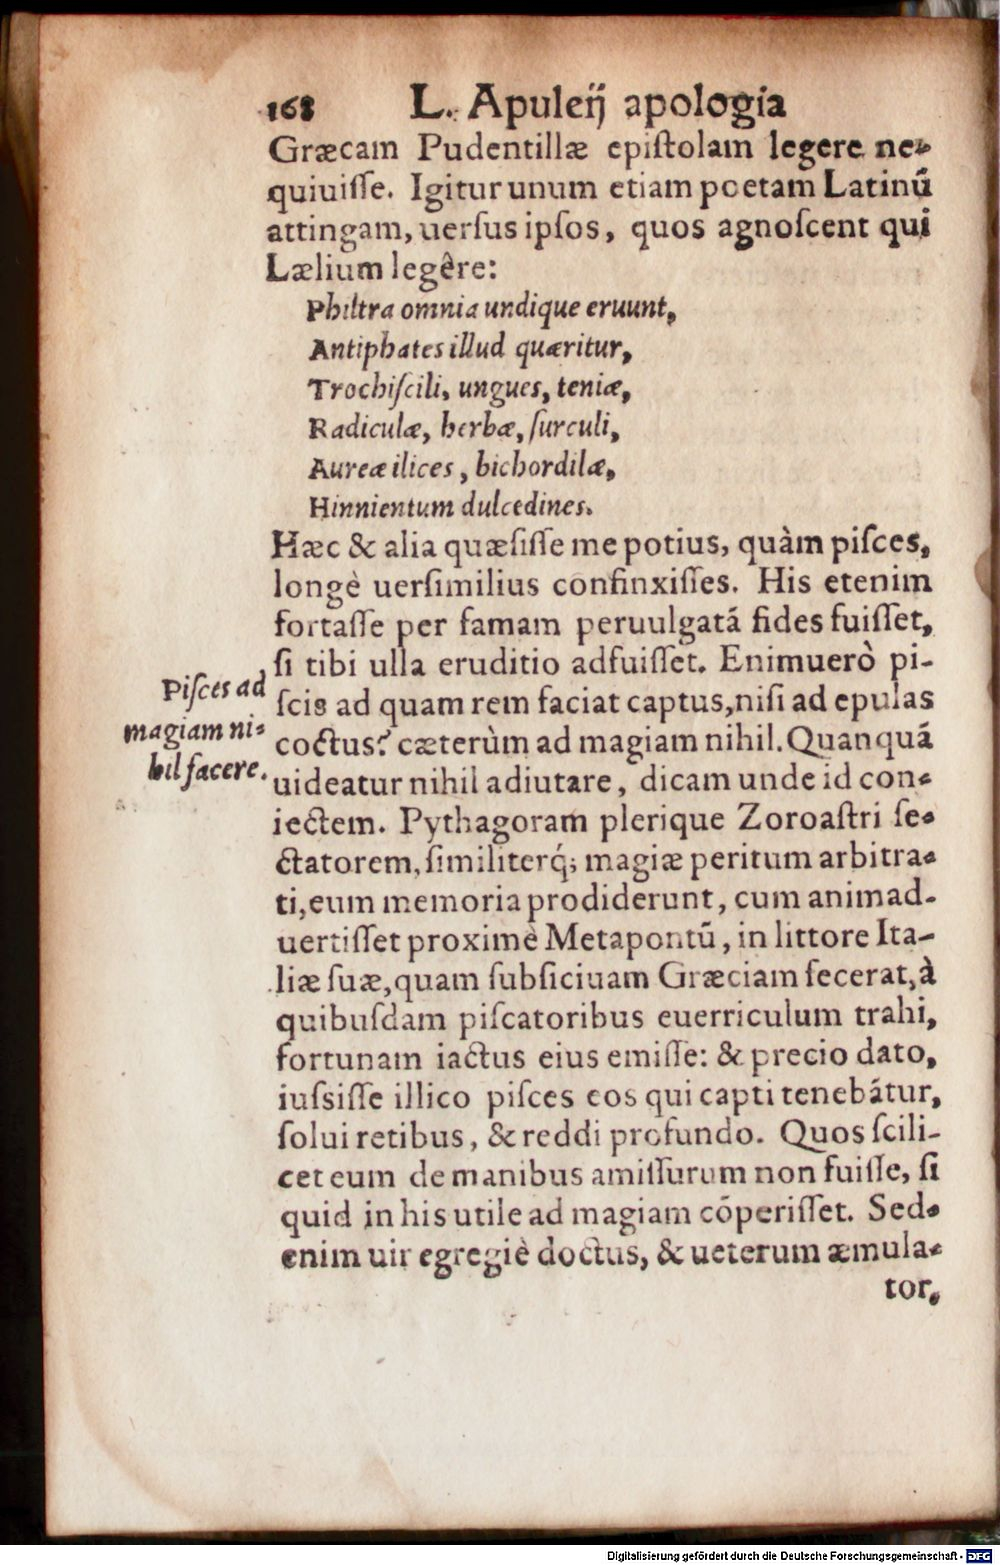 168 L. Apuleij apologia
Græcam Pudentillæ epiſtolam legere ne-
quiuiſſe. Igitur unum etiam poetam Latinũ
attingam, uerſus ipſos, quos agnoſcent qui
Lælium legêre:
Philtra omnia undique eruunt,
Antiphates illud quæritur,
Trochiſcili, ungues, teniæ,
Radiculæ, herbæ, ſurculi,
Aureæ ilices, bichordilæ,
Hinnientum dulcedines.
Hæc & alia quæſiſſe me potius, quàm piſces,
longè uerſimilius confinxiſſes. His etenim
fortaſſe per famam peruulgatã fides fuiſſet,
ſi tibi ulla eruditio adfuiſſet. Enimuerò pi-
ſcis ad quam rem faciat captus, niſi ad epulas
coctus? cæterùm ad magiam nihil. Quanquã
uideatur nihil adiutare, dicam unde id con-
iectem. Pythagoram plerique Zoroaſtri ſe-
ctatorem, ſimiliterq́; magiæ peritum arbitra-
ti, eum memoria prodiderunt, cum animad-
uertiſſet proximè Metapontũ, in littore Ita-
liæ ſuæ, quam ſubſiciuam Græciam fecerat, à
quibuſdam piſcatoribus euerriculum trahi,
fortunam iactus eius emiſſe: & precio dato,
iuſsiſſe illico piſces eos qui capti tenebãtur,
ſolui retibus, & reddi profundo. Quos ſcili-
cet eum de manibus amiſſurum non fuiſſe, ſi
quid in his utile ad magiam cõperiſſet. Sed
enim uir egregiè doctus, & ueterum æmula-
tor,
Piſces ad
magiam ni-
hil facere.
Digitalisierung gefördert durch die Deutsche Forschungsgemeinschaft - DFG